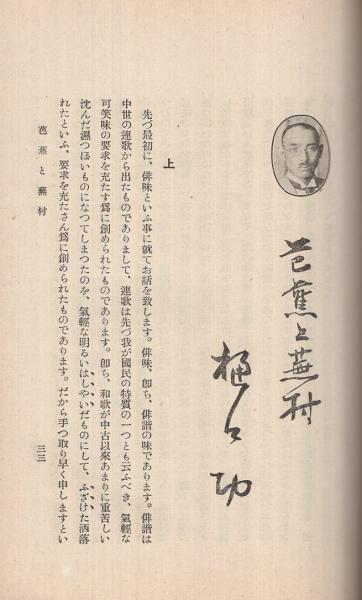 芭蕉と蕪村
樋口功
上
先づ最初に、俳味といふ事に就てお話を致します。俳味、卽ち、俳諧の味であります。俳諧は
中世の連歌から出たものでありまして、連歌は先づ我が國民の特質の一つとも云ふべき、氣輕な
可笑味の要求を充たす爲に創められたものであります。卽ち、和歌が中古以來あまりに重苦しい
沈んだ濕つぽいものになつてしまつたのを、氣輕な明るいはしやいだものにして、ふざけた洒落
れたといふ、要求を充たさん爲に創められたものであります。だから手つ取り早く申しますとい
芭蕉と蕪村
三三